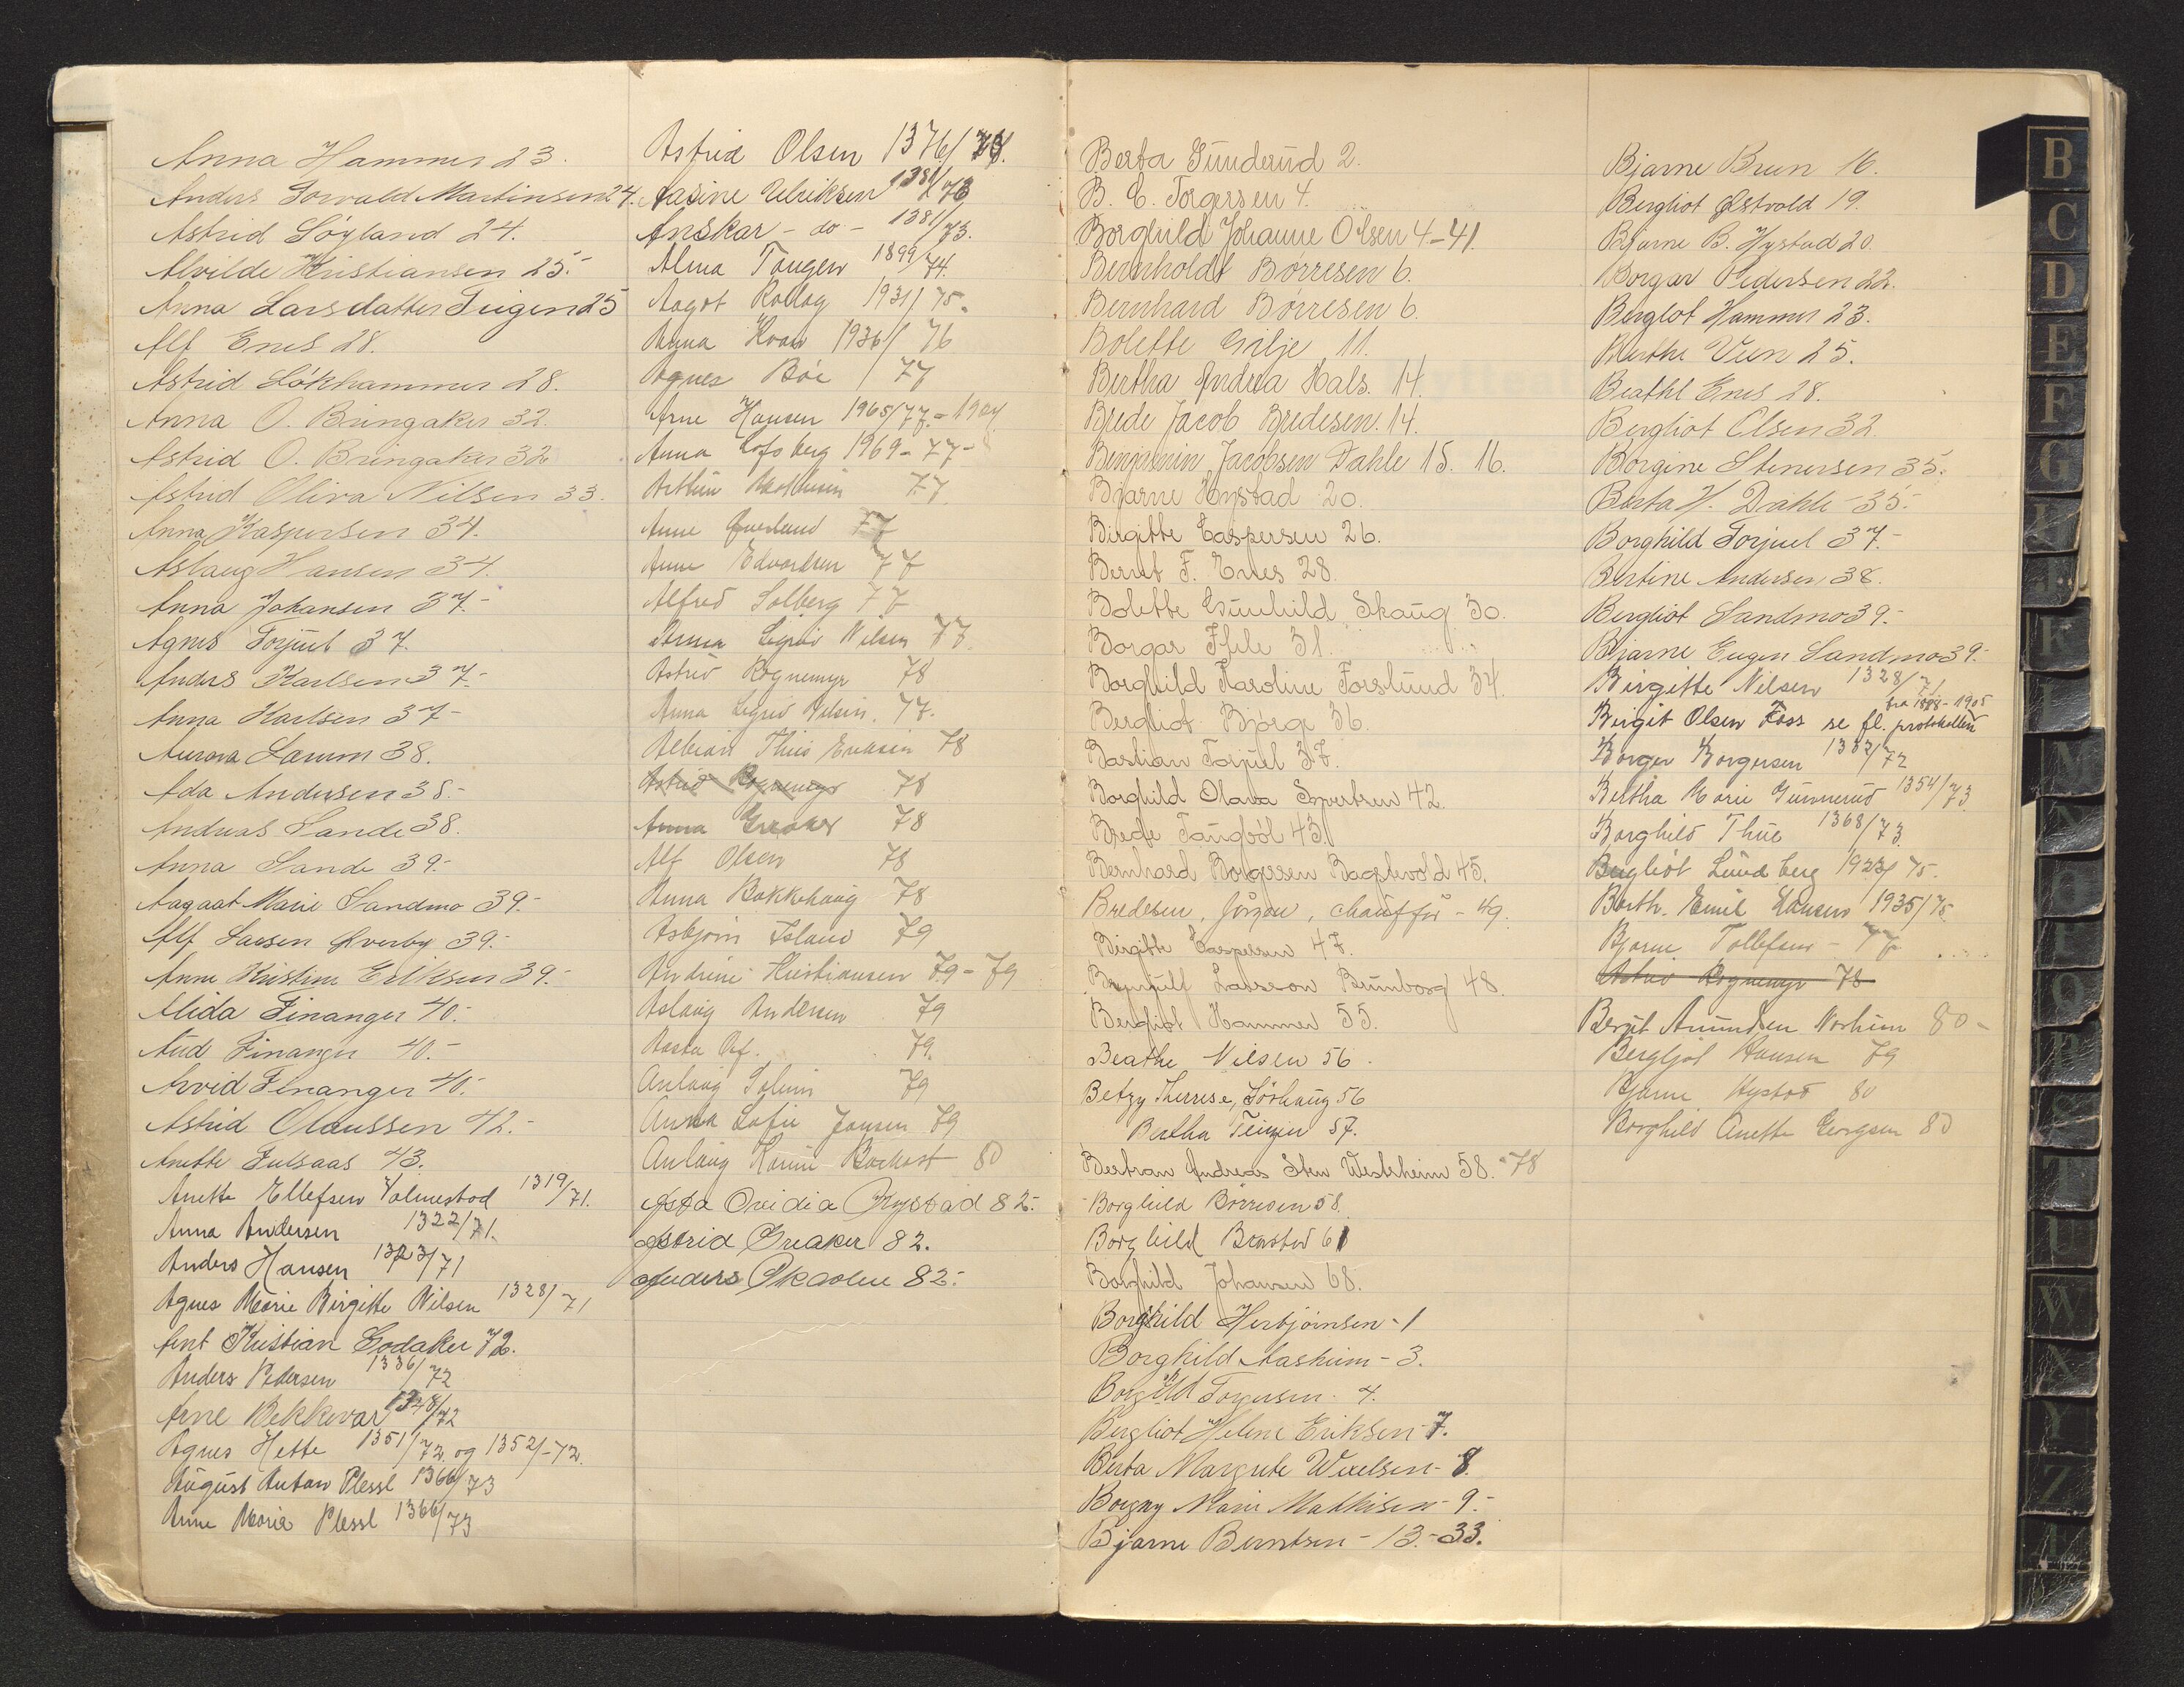 Anna Hammer 23.
Anders Torvald Martinsen 24.
Astrid Søyland 24.
Alvilde Kristiansen 25.-
Anna Larsdatter Teigen 25
Alf Enes 28.
Astrid Løkhammer 28.
Anna O. Bringaker 32.
Astrid O. Bringaker 32
Astrid Oliva Nilsen 33.
Anna Kaspersen 34.
Aslaug Hansen 34.
Anna Johansen 37.-
Agnes Torjul 37.
Anders Karlsen 37.-
Anna Karlsen 37-
Aurora Larum 38.
Ada Andersen 38.-
Andreas Sande 38.
Anna Sande 39.-
Aagaat Marie Sandmo 39.-
Alf Larsen Øverby 39.-
Anne Kristine Eriksen 39.-
Alida Finanger 40.-
Aud Finanger 40.-
Arvid Finanger 40.-
Astrid Olaussen 42.-
Anette Julsaas 43.
Anette Ellefsen Valmestad 1319/71.
Anna Andersen 1322/71.
Anders Hansen 1323/71
Agnes Marie Birgitte Nilsen 1328/71
Arnt Kristian Godaker 72.
Anders Pedersen 1336/72
Arne Bekkevar 1348/72
Agnes Hette 1351/72 og 1352/-72.
August Anton Plessl 1366/73
Anne Marie Plessl 1366/73
Astrid Olsen 1376/73.
Aasine Ulriksen 1381/73
Anskar - do - 1381/73.
Alma Tangen 1899/74.
Aagot Rollag 1931/75.
Anna 1936/76
Agnes Bøe / 77
Arne Hansen 1965/77.- 1904
Anna Lofsberg 1969-77-
77
Anne Øverland 77
Anne Edvardsen 77
Alfred Solberg 77
Sigrid Nilsen 77.
Astrid Rognemyr 78
Anna Sigrid Nilsen. 77.
78
Astrid Rognemyr 78
Anna Greaker 78
Alf Olsen 78
Anna Bakkehaug 78
Asbjørn Island 79
Andrine Kristiansen 79-79
Aslaug Andersen 79
79.
79
Anna Sofie Jansen 79
80
Asta Ovidia Rystad 82.-
Astrid Greaker 82.
Anders Skaolu 82.-
Berta Gunderud 2.
B. C. Torgersen 4.
Borghild Johanne Olsen 4.-41.
Bernholdt Børresen 6.
Bernhard Børresen 6.
Bolette Gilje 11.
Bertha Andrea Hals. 14.
Brede Jacob Bredesen. 14.
Benjamin Jacobsen Dahle 15. 16.
Bjarne Hystad 20.
Birgitte Caspersen 26.
Bernt F. Enes 28.
Bolette Gunhild Skaug 30.
Borgar Ihle 31.
Borghild Karoline Forslund 34.
Bergliot Bjorge 36.
Bastian Torjul 37.
Borghild Olava Syvertsen 42.
Brede Taugbøl 43.
Bernhard Borgersen Bagstevold 45.
Bredesen, Jørgen, chauffør - 49.
Birgitte Caspersen 47.
Brynjulf Larsson Brunborg 48.
Bergliot Hammer 55.
Beathe Nilsen 56.
Betzy Therese, Sørhaug 56
Bertha Teigen 57.
Bertran Andreas Sten Westrheim 58. -78
Borghild Børresen 58.
Borghild Brastad 61
Borghild Johansen 68.
Borghild Herbjørnsen - 1
Borghild Aasheim - 3.
Borghild Torgersen. 4.
Bergliot Helene Eriksen - 7.
Berta Margrete Wixelsen - 8.
Borgny Marie Mathisen - 9.-
Bjarne Berntsen - 13.-33.
Bjarne Brun 16.
Bergliot Østvold 19.
Bjarne B. Hystad 20.
Borgar Pedersen 22.
Berglot Hammer 23.
Berthe Veen 25.
Beathl Enes 28.
Bergliot Olsen 32.
Borgine Stenersen 35.
Berta H. Dahle - 35.-
Borghild Torjul 37.-
Bertine Andersen 38.
Bergliot Sandmo 39.-
Bjarne Eugen Sandmo 39.-
Birgitte Nilsen 1328/71
fra 1898-1905
Birgit Olsen Foss se fl. protokollen
Borger Borgersen 1332/72
Bertha Marie Gunnerud 1354/73.
Borghild Thue 1368/73.
Bergliot Lundberg 1923/75.
Barth. Emil Hansen 1935/75.
Bjarne Tollefsen - 77
Astrid Rognemyr 78
Bergit Amundsen Norheim 80-
Bergljot Hansen 79
Bjarne Hystad 80
Borghild Anette Georgsen 80
B
C
D
E
F
G
I
J
K
L
M
N
O
P
U
W
X
Y
Z